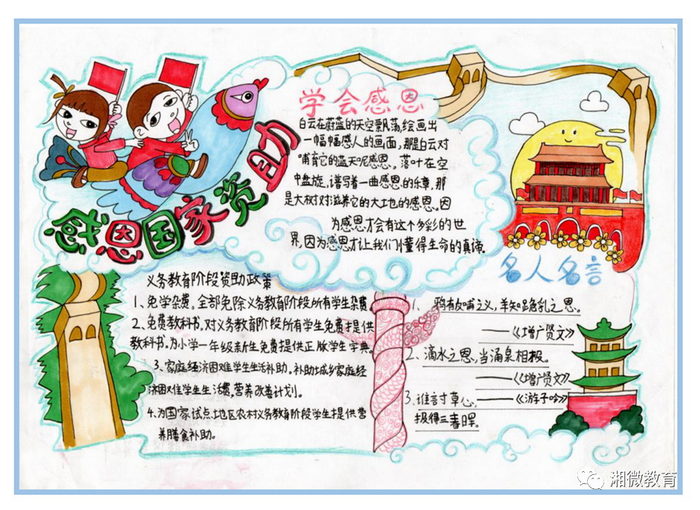 感恩国家资助
学会感恩
白云在蔚蓝的天空里飘荡,绘画出
一幅幅感人的画面,那是白云对
哺育它的蓝天的感恩。落叶在空
中盘旋,谱写着一曲感恩的乐章,那
是大树对滋养它的大地的感恩。因
为感恩才会有这个多彩的世
界,因为感恩才让我们懂得生命的真谛。
义务教育阶段资助政策
1、免学杂费。全部免除义务教育阶段所有学生杂费
2、免费教科书。对义务教育阶段所有学生免费提供
教科书。为小学一年级新生免费提供正版学生字典。
3、家庭经济困难学生生活补助。补助城乡家庭经
济困难学生生活费。营养改善计划。
4.为国家试点地区农村义务教育阶段学生提供营
养膳食补助。
名人名言
1、鸦有反哺之义,羊知跪乳之恩。
——《增广贤文》
2、滴水之恩,当涌泉相报。
——《增广贤文》
3、谁言寸草心,——《游子吟》
报得三春晖。
湘微教育